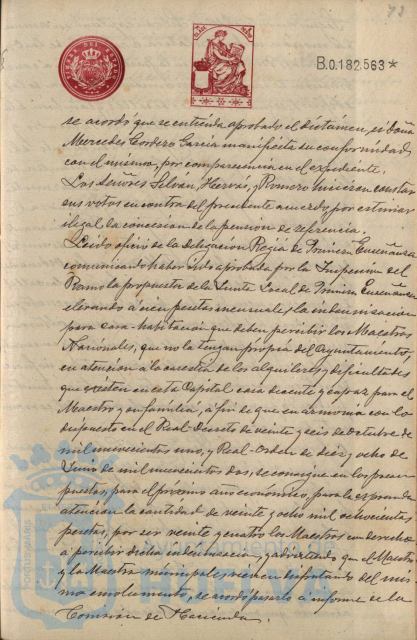 72
B.0.182.563*
se acordó que se entienda aprobado el dictámen, si Doña
Mercedes Cordero Garcia manifiesta su conformidad
con el mismo, por comparecencia en el expediente.
Los Señores Selván, Hervás, y Romero hicieron constar
sus votos en contra del precedente acuerdo por estimar
ilegal la concesion de la pension de referencia.
Leido oficio de la Delegacion Regia de Primera Enseñanza
comunicando haber sido aprobada por la Inspeccion del
Ramo la propuesta de la Junta Local de Primera Enseñanza
elevando á cien pesetas mensuales la indemnizacion
para casa-habitacion que deben percibir los Maestros
Nacionales, que no la tengan propia del Ayuntamiento
en atencion á la carestia de los alquileres y dificultades
que existen en esta Capital casa decente y capaz para el
Maestro y su familia, á fin de que en armonia con lo
dispuesto en el Real Decreto de veinte y seis de Octubre de
mil novecientos uno, y Real-Orden de diez y ocho de
Junio de mil novecientos dos, se consigne en los presu-
puestos, para el próximo año económico, para la expresada
atencion la cantidad de veinte y ocho mil ochocientas
pesetas, por ser veinte y cuatro los Maestros con derecho
á percibir dicha indemnizacion, y que el Maestro
y la Maestra municipales vienen disfrutando del mis-
mo emolumento, se acordó pasarlo á informe de la
Comisión de Hacienda.